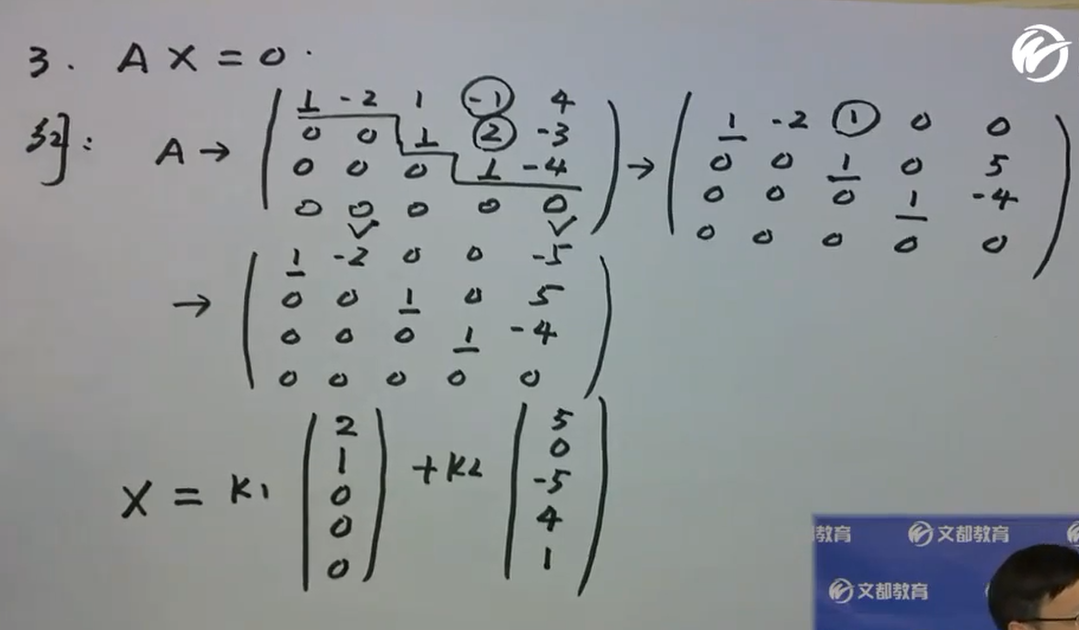 3. AX=0.
例: A→ (1 -2 1 -1 4) → (1 -2 1 0 0)
0 0 1 2 -3   0 0 1 0 5
0 0 0 1 -4   0 0 0 1 -4
0 0 0 0 0   0 0 0 0 0
→ (1 -2 0 0 -5)
0 0 1 0 5
0 0 0 1 -4
0 0 0 0 0
X = K1 (2 1 0 0 0) + K2 (5 0 -5 4 1)
教育 文都教育
文都教育